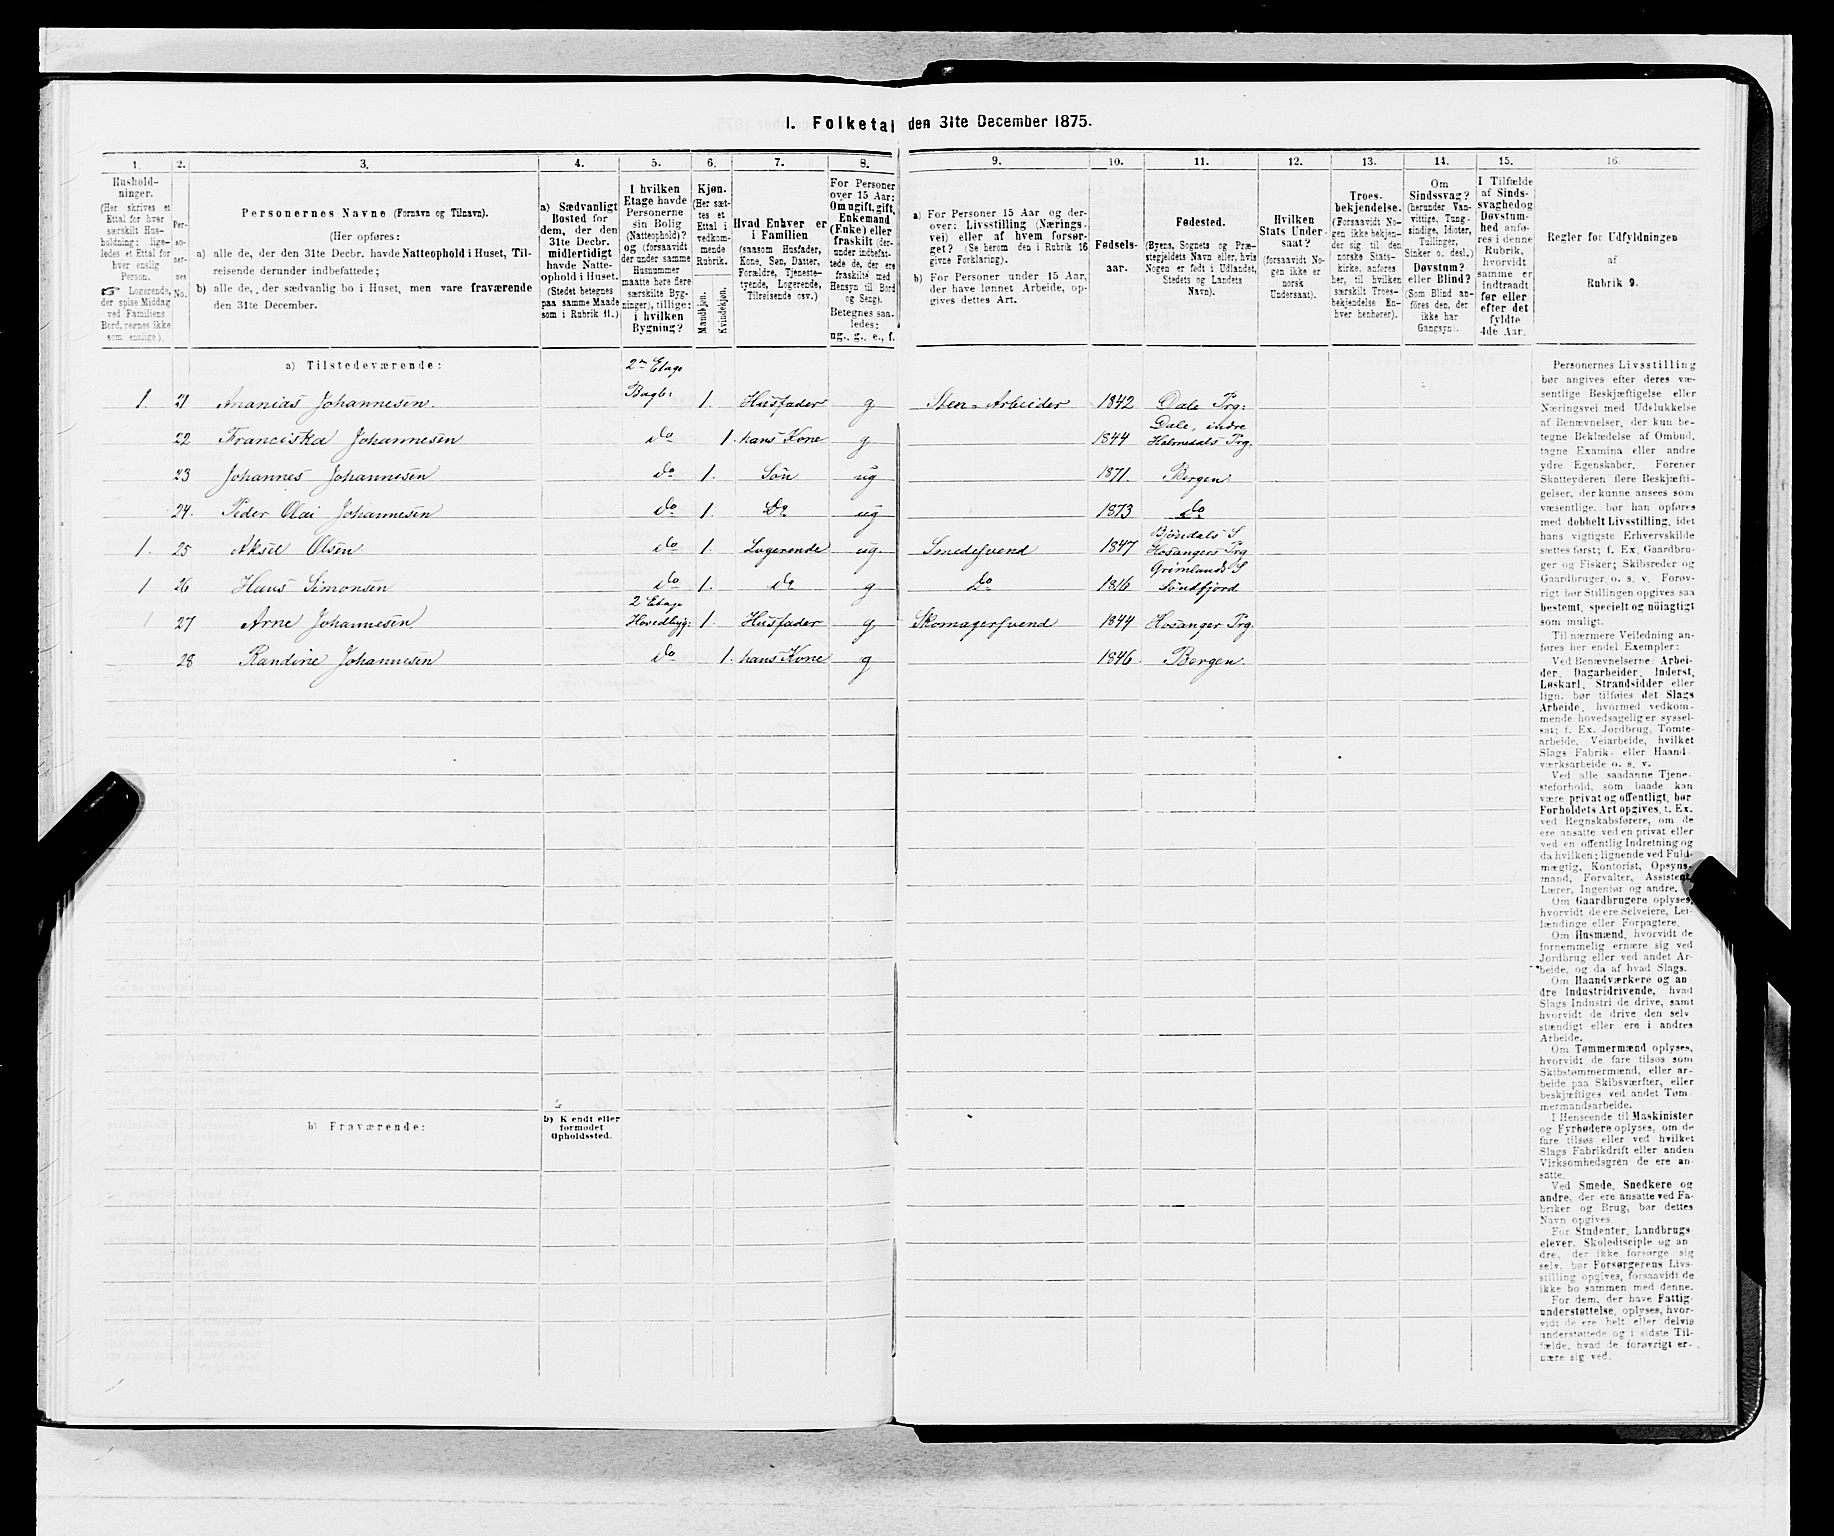 I. Folketal den 31te December 1875.
1. 2. 3. 4. 5. 6. 7. 8. 9. 10. 11. 12. 13. 14. 15. 16.
Hushold-
ninger.
(Her skrives et
Ettal for hver
særskilt Hus-
holdning; lige-
ledes et Ettal for
hver enslig
Person.
☞ Logerende,
der spise Middag
ved Familiens
Bord, regnes ikke
som enslige).
Per-
so-
ner-
nes
No.
Personernes Navne (Fornavn og Tilnavn).
(Her opføres:
a) alle de, der den 31te Decbr. havde Natteophold i Huset, Til-
reisende derunder indbefattede;
b) alle de, der sædvanlig bo i Huset, men vare fraværende
den 31te December.
a) Sædvanligt
Bosted for
dem, der den
31te Decbr.
midlertidigt
havde Natte-
ophold i Huset.
(Stedet betegnes
paa samme Maade
som i Rubrik 11.)
I hvilken
Etage havde
Personerne
sin Bolig
(Natteophold)?
og (forsaavidt
der under samme
Husnummer
maatte høre flere
særskilte Byg-
ninger), tillige:
i hvilken
Bygning?
Kjøn.
(Her sæt-
tes et
Ettal i
vedkom-
mende
Rubrik.
Mandkjøn.
Kvindekjøn.
Hvad Enhver er
i Familien
(saasom Husfader,
Kone, Søn, Datter,
Forældre, Tjeneste-
tyende, Logerende,
Tilreisende osv.)
For Personer
over 15 Aar:
Om ugift, gift,
Enkemand
(Enke) eller
fraskilt (der-
under indbefat-
tede de, der ere
fraskilte med
Hensyn til Bord
og Seng).
Betegnes saa-
ledes:
ug., g., e., f.
a) For Personer 15 Aar og der-
over: Livsstilling (Nærings-
vei) eller af hvem forsør-
get? (Se herom den i Rubrik 16
givne Forklaring).
b) For Personer under 15 Aar,
der have lønnet Arbeide, op-
gives dettes Art.
Fødsels-
aar.
Fødested.
(Byens, Sognets og Præ-
stegjeldets Navn eller, hvis
Nogen er født i Udlandet,
Stedets og Landets
Navn).
Hvilken
Stats Under-
saat?
(forsaavidt No-
gen ikke er
norsk
Undersaat).
Troes-
bekjendelse.
(Forsaavidt No-
gen ikke bekjen-
der sig til den
norske Stats-
kirke, anføres
her, til hvilken
særskilt Troes-
bekjendelse En-
hver henhører).
Om
Sindssvag?
(herunder Van-
vittige, Tung-
sindige, Idioter,
Tullinger,
Sinker o. desl.)
Døvstum?
eller Blind?
(Som Blind an-
føres den, der
ikke har
Gangsyn).
I Tilfælde
af Sinds-
svaghed og
Døvstum-
hed anfø-
res i denne
Rubrik,
hvorvidt
samme er
indtraadt
før eller
efter det
fyldte
4de Aar.
Regler for Udfyldningen
af
Rubrik 9.
a) Tilstedeværende:
2n Etage
1. 21 Ananias Johannesen. Bagb: 1. Husfader g Sten-Arbeider 1842 Dale Prg:
22 Franciska Johannesen do 1. hans Kone g 1844 Dale, indre
Holmedals Prg.
23 Johannes Johannesen do 1. Søn ug 1871. Bergen.
24. Peder Olai Johannesen do 1. Do ug 1873 do
1. 25 Aksel Olsen do 1. Logerende ug Smedesvend 1847 Bjöndals S
Hosangers Prg
1 26 Hans Simonsen do 1. do g do 1816 Grimlands S
Söndfjord
1 27 Arne Johannesen 2 Etage
Hovedbyg: 1. Husfader g Skomagersvend 1844 Hosanger Prg.
28 Randine Johannesen do 1. hans Kone g 1846. Bergen.
b) Fraværende:
b) Kjendt eller
formodet
Opholdssted.
Personernes Livsstilling
bør angives efter deres væ-
sentlige Beskjæftigelse eller
Næringsvei med Udelukkelse
af Benævnelser, der kun be-
tegne Beklædelse af Ombud,
tagne Examina eller andre
ydre Egenskaber. Forener
Skatteyderen flere Beskjæfti-
gelser, der kunne ansees som
væsentlige, bør han opføres
med dobbelt Livsstilling, idet
hans vigtigste Erhvervskilde
sættes først; f. Ex. Gaardbru-
ger og Fisker; Skibsreder og
Gaardbruger o. s. v. Forøv-
rigt bør Stillingen opgives saa
bestemt, specielt og nøiagtigt
som muligt.
Til nærmere Veiledning an-
føres her endel Exempler:
Ved Benævnelserne: Arbei-
der, Dagarbeider, Inderst,
Løskarl, Strandsidder eller
lign. bør tilføies det Slags
Arbeide, hvormed vedkom-
mende hovedsagelig er syssel-
sat; f. Ex. Jordbrug, Tomte-
arbeide, Veiarbeide, hvilket
Slags Fabrik- eller Haand-
værksarbeide o. s. v.
Ved alle saadanne Tjene-
steforhold, som baade kan
være privat og offentligt, bør
Forholdets Art opgives, t. Ex.
ved Regnskabsførere, om de
ere ansatte ved en privat eller
ved en offentlig Indretning og
da hvilken; lignende ved Fuld-
mægtig, Kontorist, Opsyns-
mand, Forvalter, Assistent,
Lærer, Ingeniør og andre.
Om Gaardbrugere oplyses,
hvorvidt de ere Selveiere, Lei-
lændinge eller Forpagtere.
Om Husmænd, hvorvidt de
fornemmelig ernære sig ved
Jordbrug eller ved andet Ar-
beide, og da af hvad Slags.
Om Haandværkere og an-
dre Industridrivende, hvad
Slags Industri de drive, samt
hvorvidt de drive den selv-
stændigt eller ere i andres
Arbeide.
Om Tømmermænd oplyses,
hvorvidt de fare tilsøs som
Skibstømmermænd, eller ar-
beide paa Skibsværfter, eller
beskjæftiges ved andet Tøm-
mermandsarbeide.
I Henseende til Maskinister
og Fyrbødere oplyses, om de
fare tilsøs eller ved hvilket
Slags Fabrikdrift eller anden
Virksomhedsgren de ere an-
satte.
Ved Smede, Snedkere og
andre, der ere ansatte ved Fa-
briker og Brug, bør dettes
Navn opgives.
For Studenter, Landbrugs-
elever, Skoledisciple og an-
dre, der ikke forsørge sig
selv, bør Forsørgerens Livs-
stilling opgives, forsaavidt de
ikke bo sammen med denne.
For dem, der have Fattig-
understøttelse, oplyses, hvor-
vidt de ere helt eller delvis
understøttede og i sidste Til-
fælde, hvad de forøvrigt er-
nære sig ved.